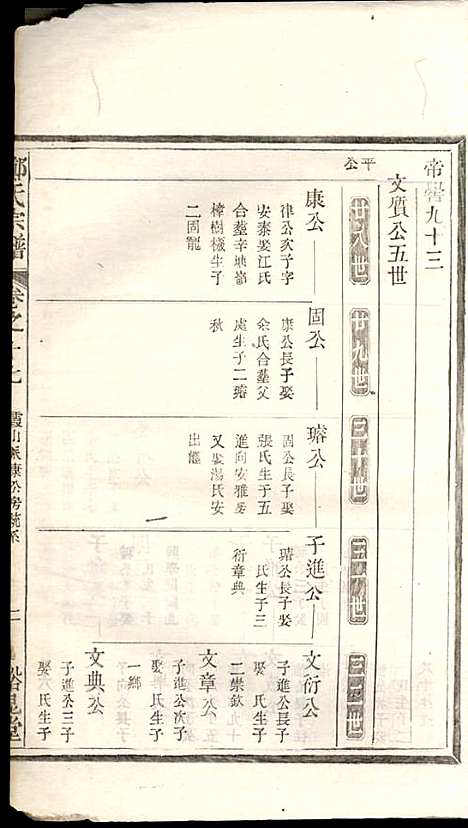 帝嚳九十三
文質公五世
平公
廿八世
廿九世
三十世
三十一世
三十二世
康公
律公次子字
安泰娶江氏
合葬辛坳嵛
樟樹樣生子
二固寵
固公
康公長子娶
余氏合葬父
處生子二瑢
秋
瑢公
固公長子娶
張氏生子五
進向安雅房
又娶湯氏安
出繼
子進公
瑢公長子娶
氏生子三
衍章典
文衍公
子進公長子
娶 氏生子
二崇欽
文章公
子進公次子
娶 氏生子
一鄉
文典公
子進公三子
娶 氏生子
鄭氏宗譜
卷之十七
霞山派康公房統系